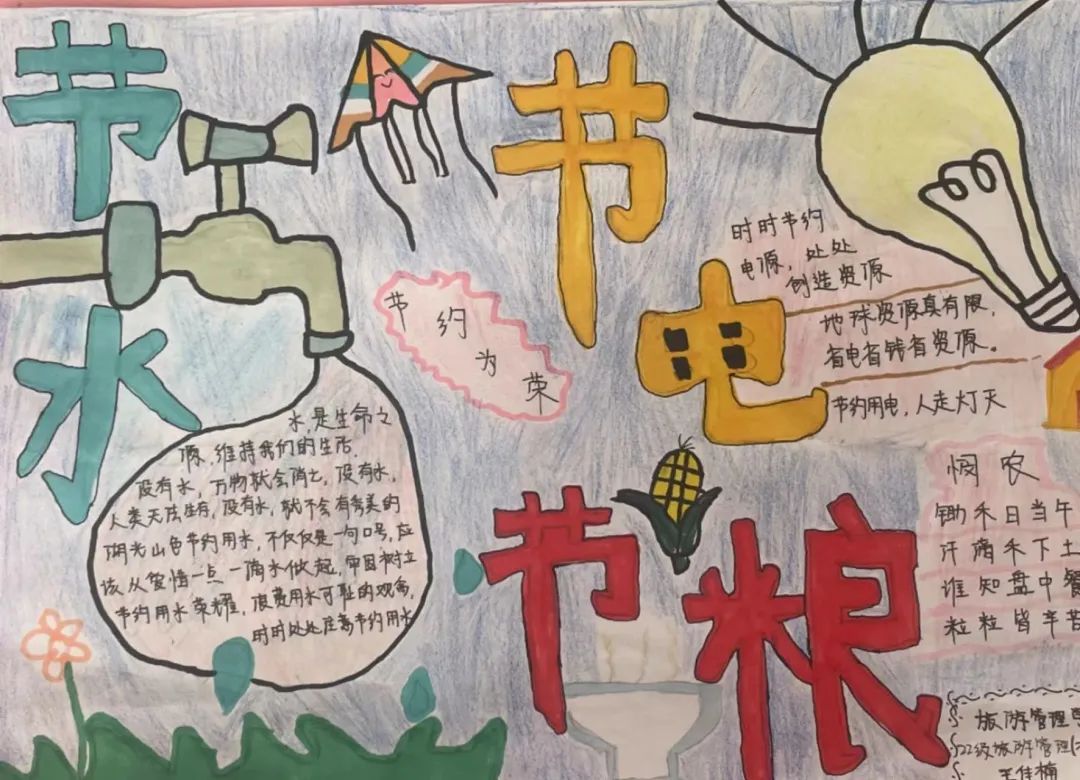 节水
水是生命之
源,维持我们的生活.
没有水,万物就会消亡,没有水,
人类无法生存,没有水,就不会有秀美的
湖光山色节约用水,不仅仅是一句口号,应
该从爱惜一点一滴水做起,牢固树立
节约用水荣耀,浪费用水可耻的观念,
时时处处注意节约用水
节约为荣
节电
时时节约
电源,处处
创造资源
地球资源真有限,
省电省钱省资源。
节约用电,人走灯灭
节粮
悯农
锄禾日当午
汗滴禾下土
谁知盘中餐
粒粒皆辛苦
旅游管理
22级旅游管理(
王佳楠